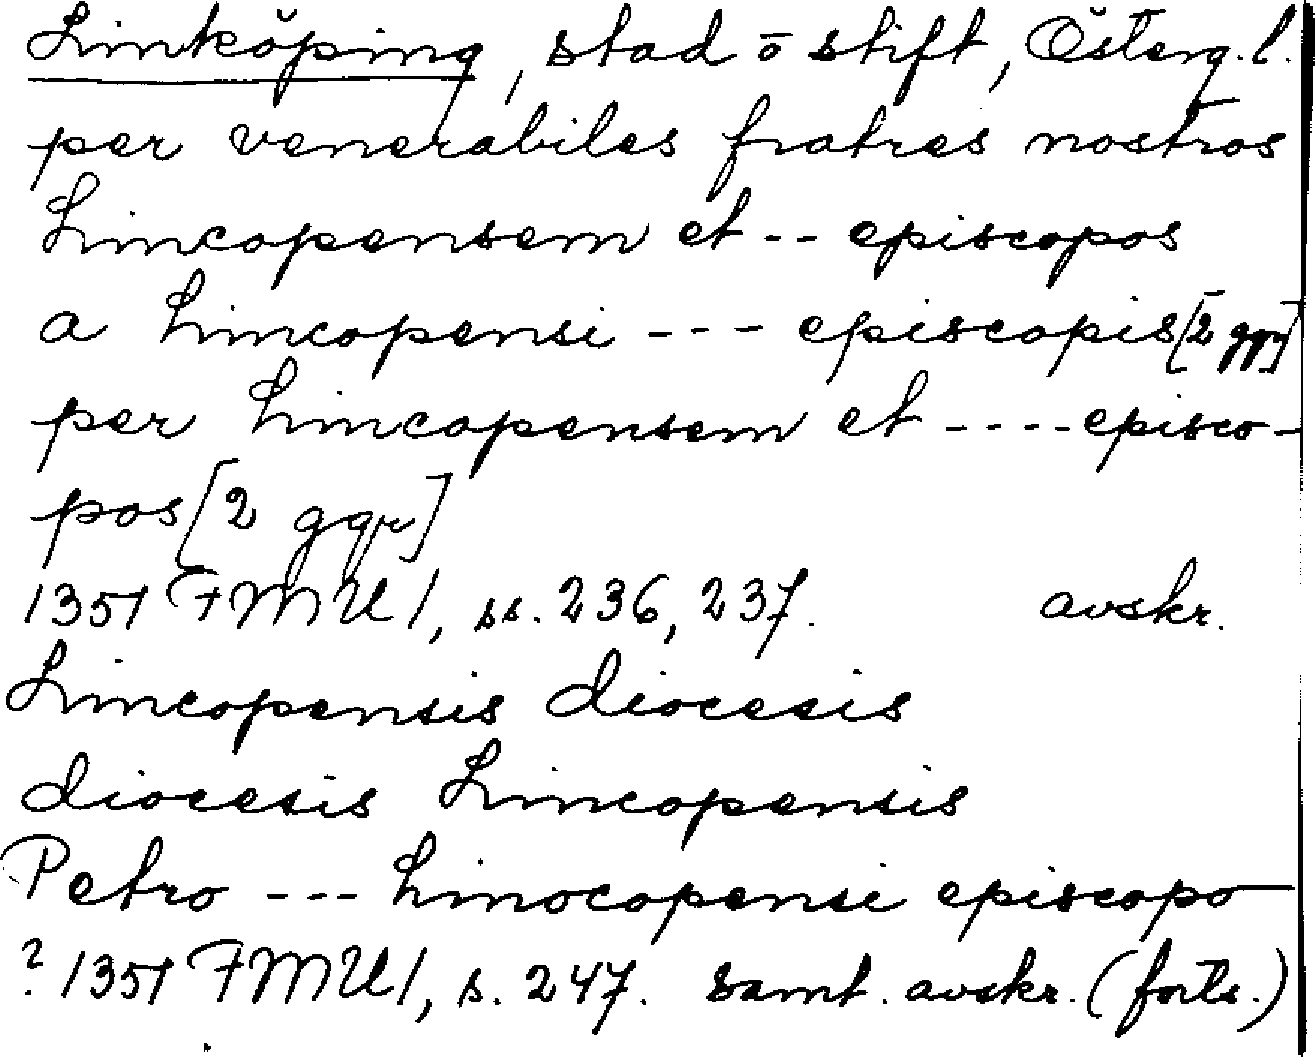 Linköping, stad o stift, Österg.l.
per venerabiles fratres nostros
Lincopensem et -- episcopos
a Lincopensi --- episcopis [2 ggr]
per Lincopensem et ---- episco-
pos [2 ggr]
1351 FMU 1, ss. 236, 237. avskr.
Lincopensis diocesis
diocesis Lincopensis
Petro --- Linocopensi episcopo
? 1351 FMU 1, s. 247. samt. avskr. (forts.)